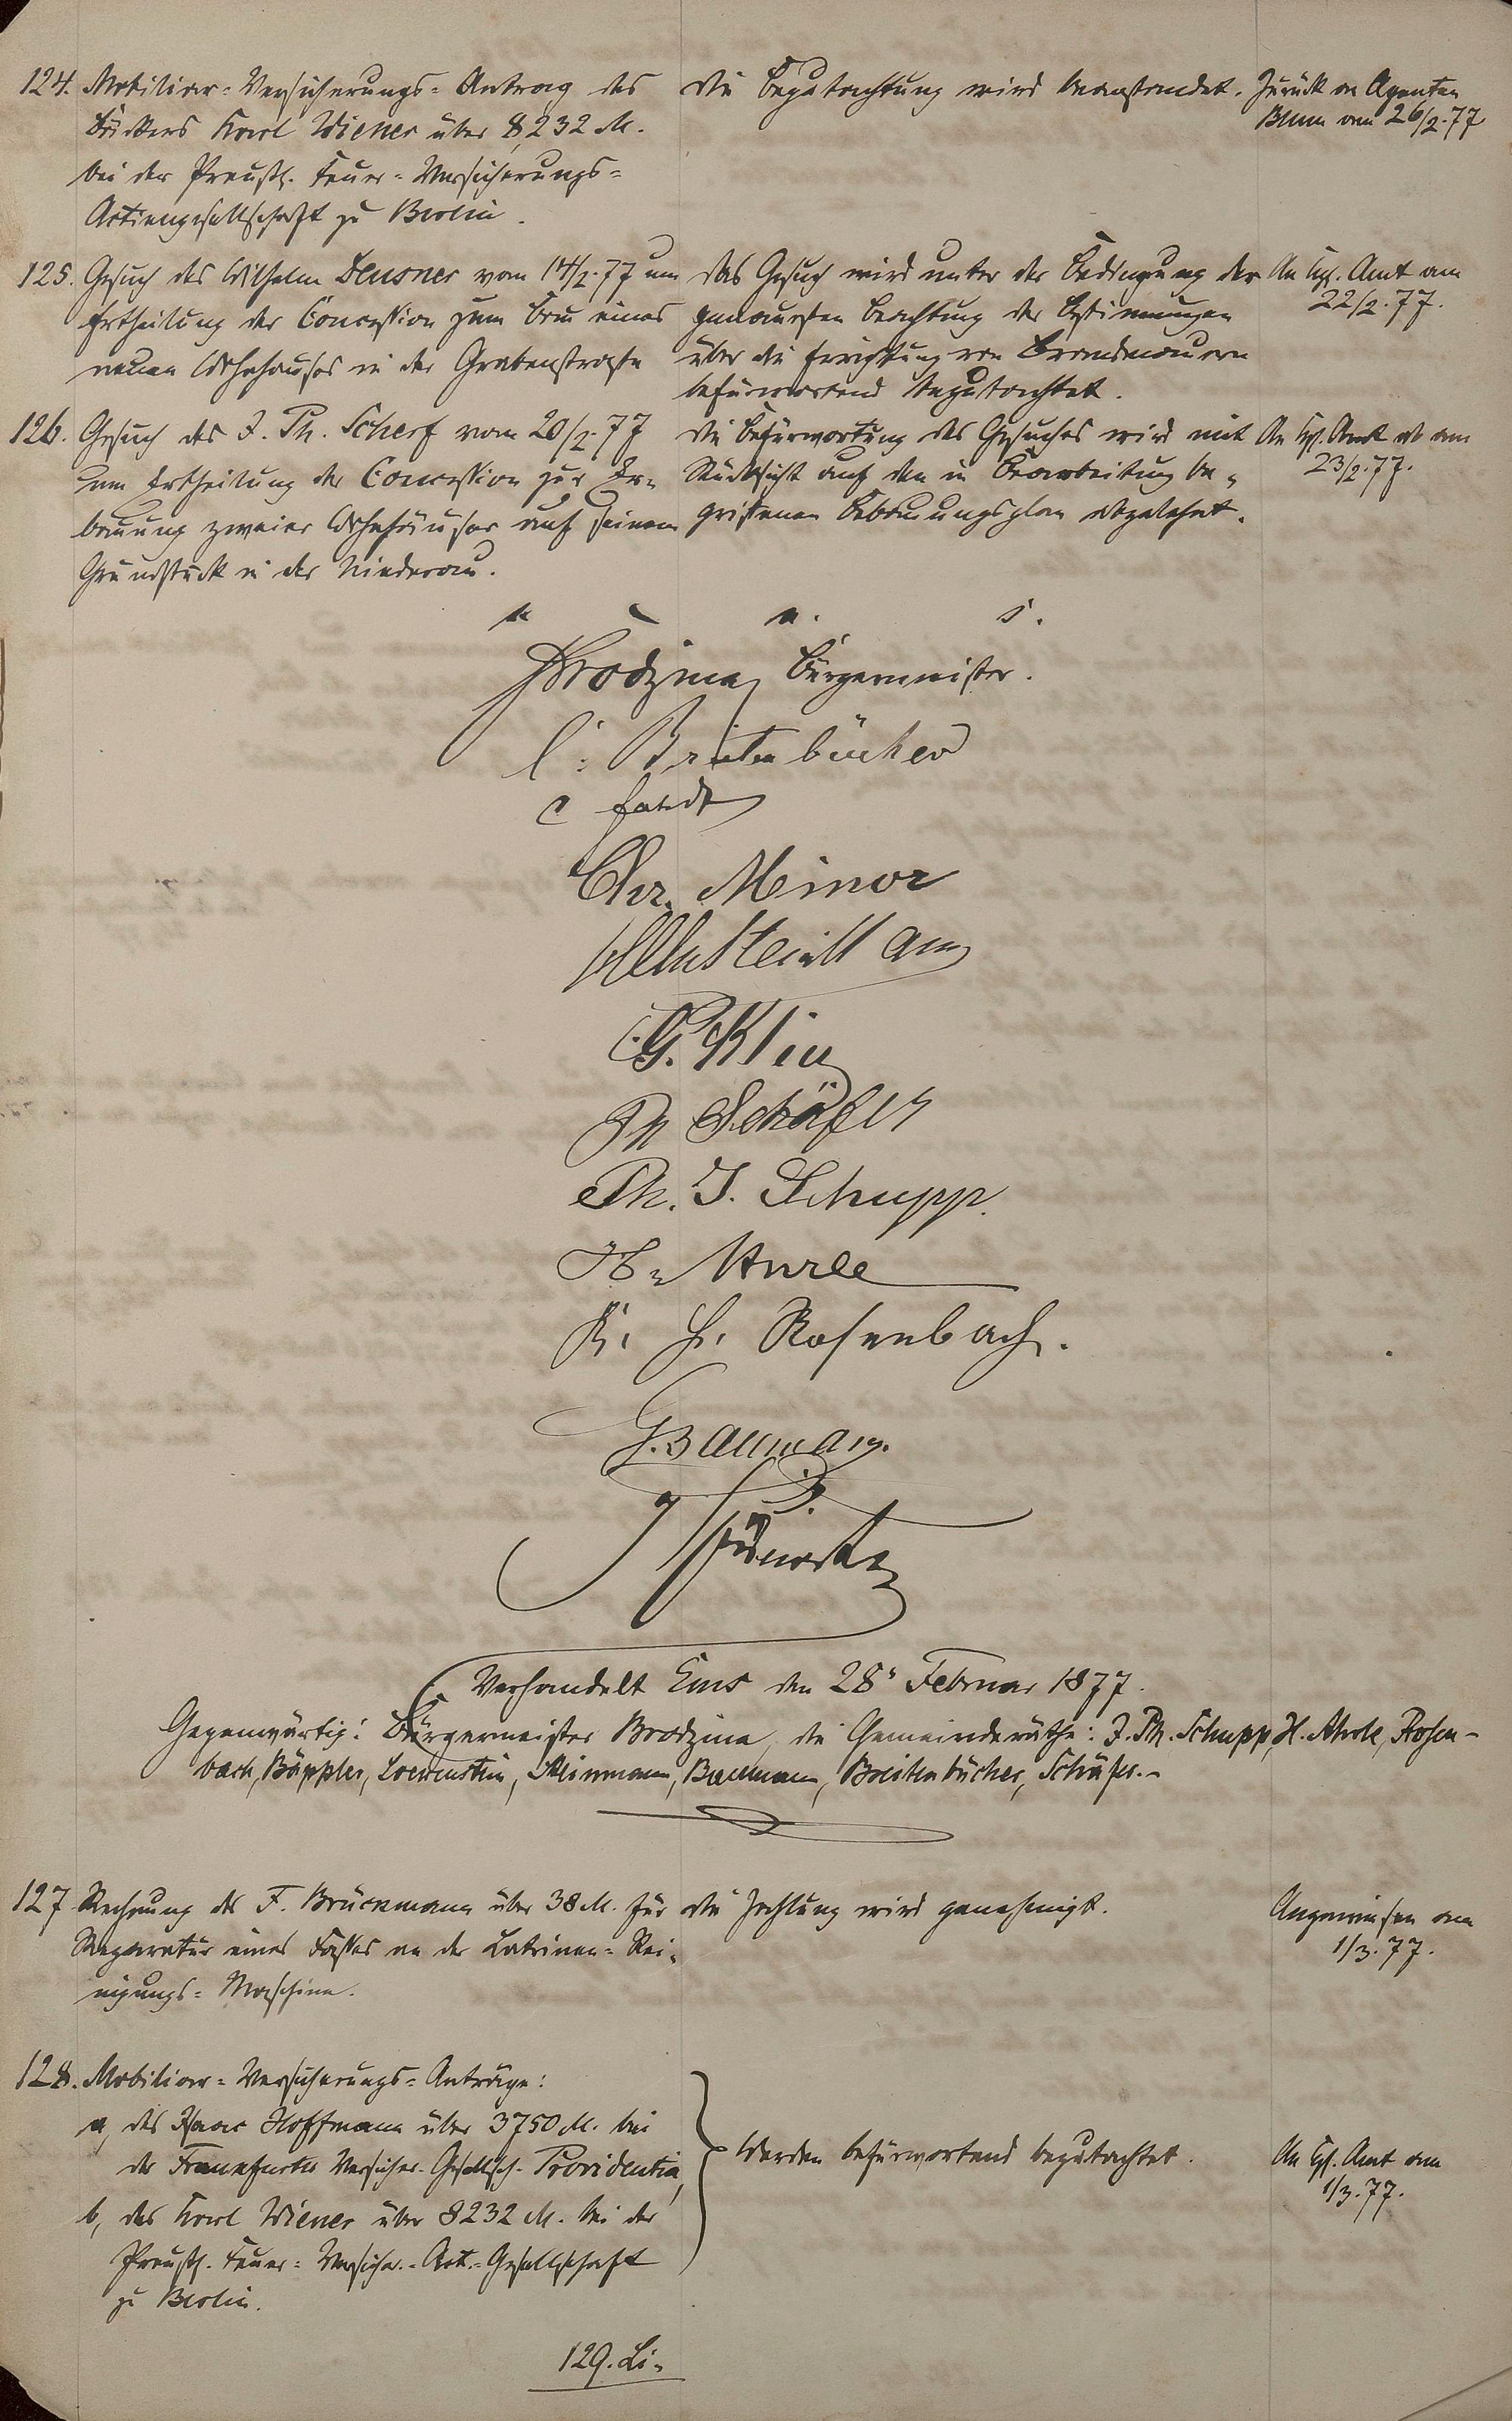 124. Mobiliar-Versicherungs-Antrag des
Bäckers Karl Wiener über 8,232 M.
bei der Preuß. Feuer-Versicherungs-
Actiengesellschaft zu Berlin.
Die Begutachtung wird beanstandet.
Zurück an Agenten
Blum am 26/2.77
125. Gesuch des Wilhelm Deusner vom 14/2.77 um
Ertheilung der Concession zum Bau eines
neuen Wohnhauses in der Grabenstraße
Das Gesuch wird unter der Bedingung der
genauesten Beachtung der Bestimmungen
über die Errichtung von Brandmauern
befürwortend begutachtet.
An Kgl. Amt am
22/2.77.
126. Gesuch des J. Ph. Scherf vom 20/2.77
um Ertheilung der Concession zur Er-
bauung zweier Wohnhäuser auf seinem
Grundstück in der Niederau.
Die Befürwortung des Gesuches wird mit
Rücksicht auf den in Bearbeitung be-
griffenen Bebauungsplan abgelehnt.
An Kgl. Amt ab am
23/2.77.
Brodzina Bürgermeister.
C. Breitenbücher
Chr. Minor
G. Klein
Ph Schäfer
Ph. J. Schupp.
H. Ahrle
K. H. Rosenbach.
G. Baumann.
Verhandelt Ems den 28t Februar 1877.
Gegenwärtig: Bürgermeister Brodzina, die Gemeinderäthe: J. Ph. Schupp, H. Ahrle, Rosen-
bach, Bäppler, Loewenstein, Kleinmann, Baumann, Breitenbücher, Schäfer.-
127 Rechnung des F. Brückmann über 38 M. für
Reparatur eines Fasses an der Latrinen-Rei-
nigungs-Maschine.
Die Zahlung wird genehmigt.
Angewiesen am
1/3.77.
128. Mobiliar-Versicherungs-Anträge:
a, des Isaac Hoffmann über 3750 M. bei
der Frankfurter Versicher.-Gesellsch. Providentia,
b, des Karl Wiener über 8232 M. bei der
Preuß. Feuer-Versicher.-Act.-Gesellschaft
zu Berlin.
Werden befürwortend begutachtet.
An Kgl. Amt am
1/3.77.
129. Li-